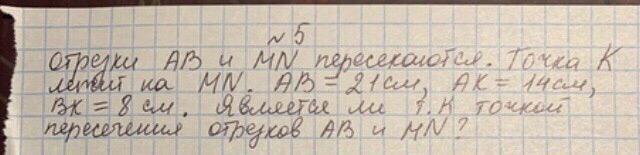 №5
Отрезки АВ и MN пересекаются. Точка К
лежит на MN. АВ = 21 см, АК = 14 см,
ВК = 8 см. Является ли т. К точкой
пересечения отрезков АВ и MN?